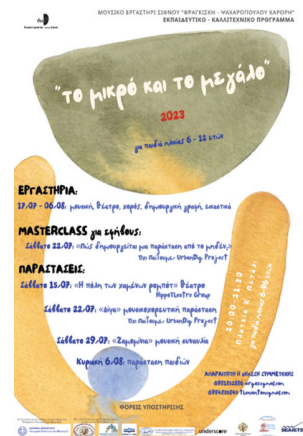 ΜΟΥΣΙΚΟ ΕΡΓΑΣΤΗΡΙ ΣΙΦΝΟΥ "ΦΡΑΓΚΙΣΚΗ - ΨΑΧΑΡΟΠΟΥΛΟΥ ΚΑΡΟΡΗ"
ΕΚΠΑΙΔΕΥΤΙΚΟ - ΚΑΛΛΙΤΕΧΝΙΚΟ ΠΡΟΓΡΑΜΜΑ
"το μικρό και το μεγάλο"
2023
για παιδιά ηλικίας 6 - 12 ετών
ΕΡΓΑΣΤΗΡΙΑ:
17.07 - 06.08: μουσική, θέατρο, χορός, δημιουργική γραφή, εικαστικά
MASTERCLASS για εφήβους:
Σάββατο 22.07: «Πώς δημιουργείται μια παράσταση από το μηδέν;»
Όχι Παίζουμε UrbanDig Project
ΠΑΡΑΣΤΑΣΕΙΣ:
Σάββατο 15.07: «Η πόλη των χαμένων ρομπότ» θέατρο
Hippo Theatre Group
Σάββατο 22.07: «Δίγα» μουσικοχορευτική παράσταση
Όχι Παίζουμε UrbanDig Project
Σάββατο 29.07: μουσική συναυλία
Κυριακή 6.08: παράσταση παιδιών
20:00-21:30
ΑΠΑΡΑΙΤΗΤΗ Η ΔΗΛΩΣΗ ΣΥΜΜΕΤΟΧΗΣ
ΦΟΡΕΙΣ ΥΠΟΣΤΗΡΙΞΗΣ
underscore
SEAJETS